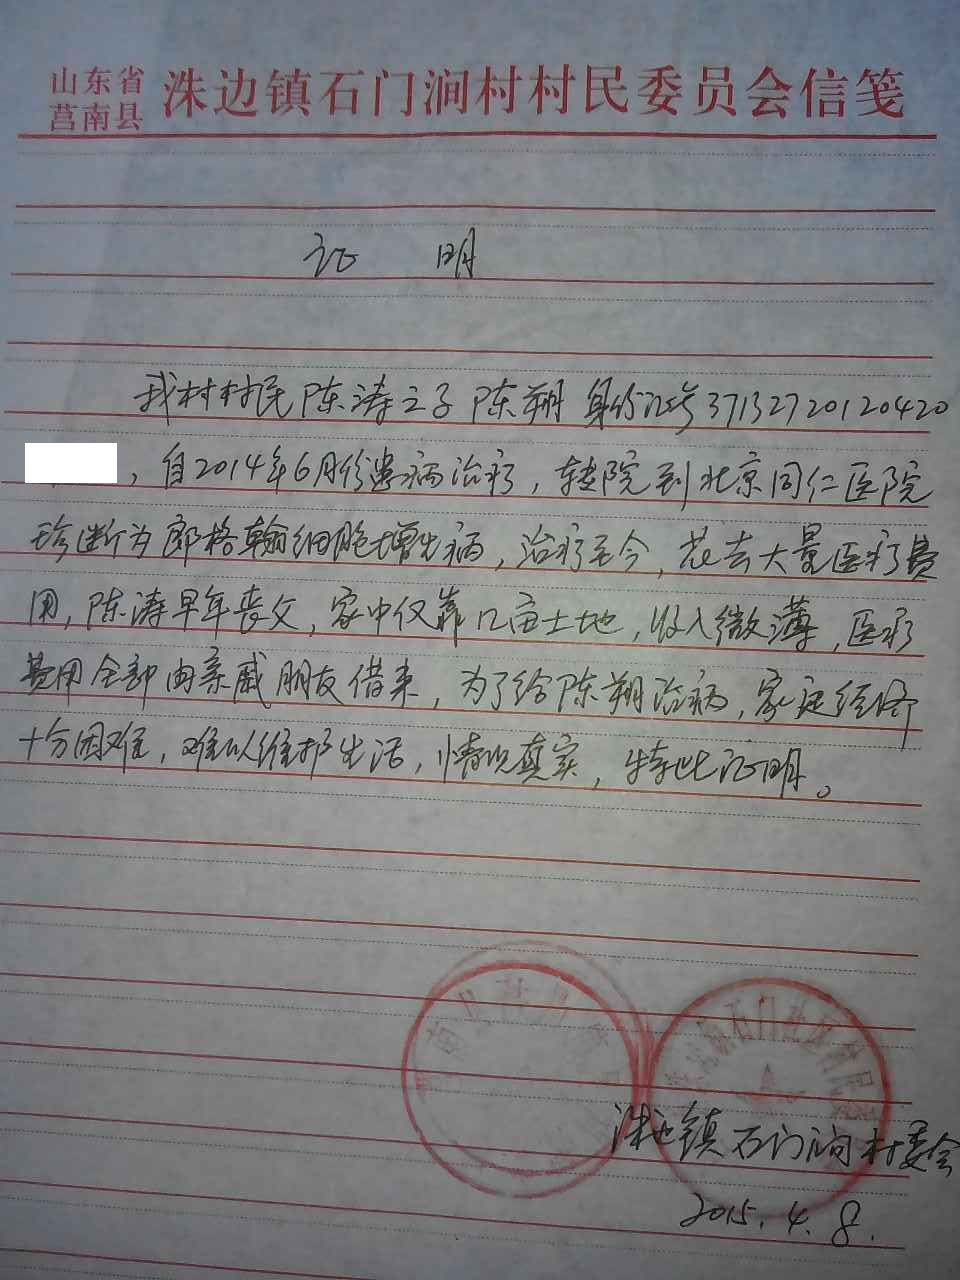 山东省
莒南县
洙边镇石门涧村村民委员会信笺
证 明
我村村民陈涛之子陈翔身份证号37132720120420
，自2014年6月份患病治疗，转院到北京同仁医院
珍断为郎格翰细胞增生病，治疗至今，花去大量医疗费
用，陈涛早年丧父，家中仅靠几亩土地，收入微薄，医疗
费用全部由亲戚朋友借来，为了给陈翔治病，家庭经济
十分困难，难以维护生活，情况真实，特此证明。
洙边镇石门涧村委会
2015.4.8.